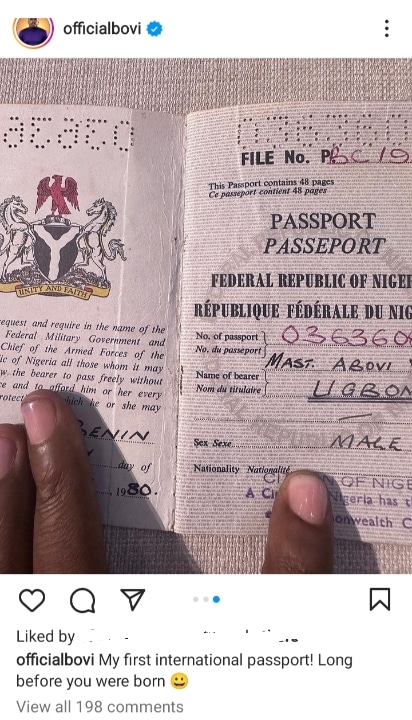 officialbovi
FILE No. PBC19
This Passport contains 48 pages
Ce passeport contient 48 pages
PASSPORT
PASSEPORT
FEDERAL REPUBLIC OF NIGE
RÉPUBLIQUE FÉDÉRALE DU NIG
No. of passport
No. du passeport
036360
Name of bearer
Nom du titulaire
MAST. ABOVI
UGBO
Sex Sexe
MALE
Nationality Nationalité
OF NIGE
A Ci
geria has
onwealth C
UNITY AND FAITH
equest and require in the name of the
Federal Military Government and
Chief of the Armed Forces of the
ic of Nigeria all those whom it may
w the bearer to pass freely without
e and to afford him or her every
rotect hich he or she may
ENIN
day of
1980.
Liked by
officialbovi My first international passport! Long
before you were born 😀
View all 198 comments